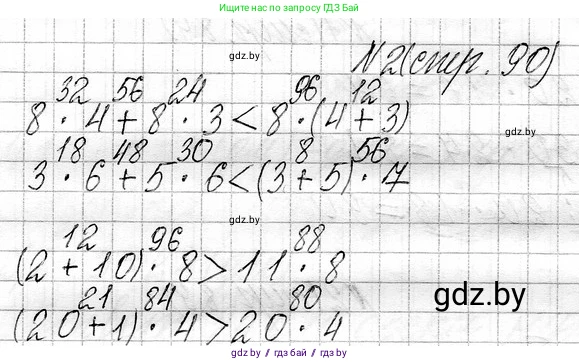 Ищите нас по запросу ГДЗ Бай
gdz.by
N2(стр. 90)
32 56 24 96 12
8 · 4 + 8 · 3 < 8 · (4 + 3)
gdz.by
18 48 30 8 56
3 · 6 + 5 · 6 < (3 + 5) · 7
gdz.by
12 96 88
(2 + 10) · 8 > 11 · 8
21 84 80
gdz.by
(20 + 1) · 4 > 20 · 4
gdz.by | гдз бай | gdz.by